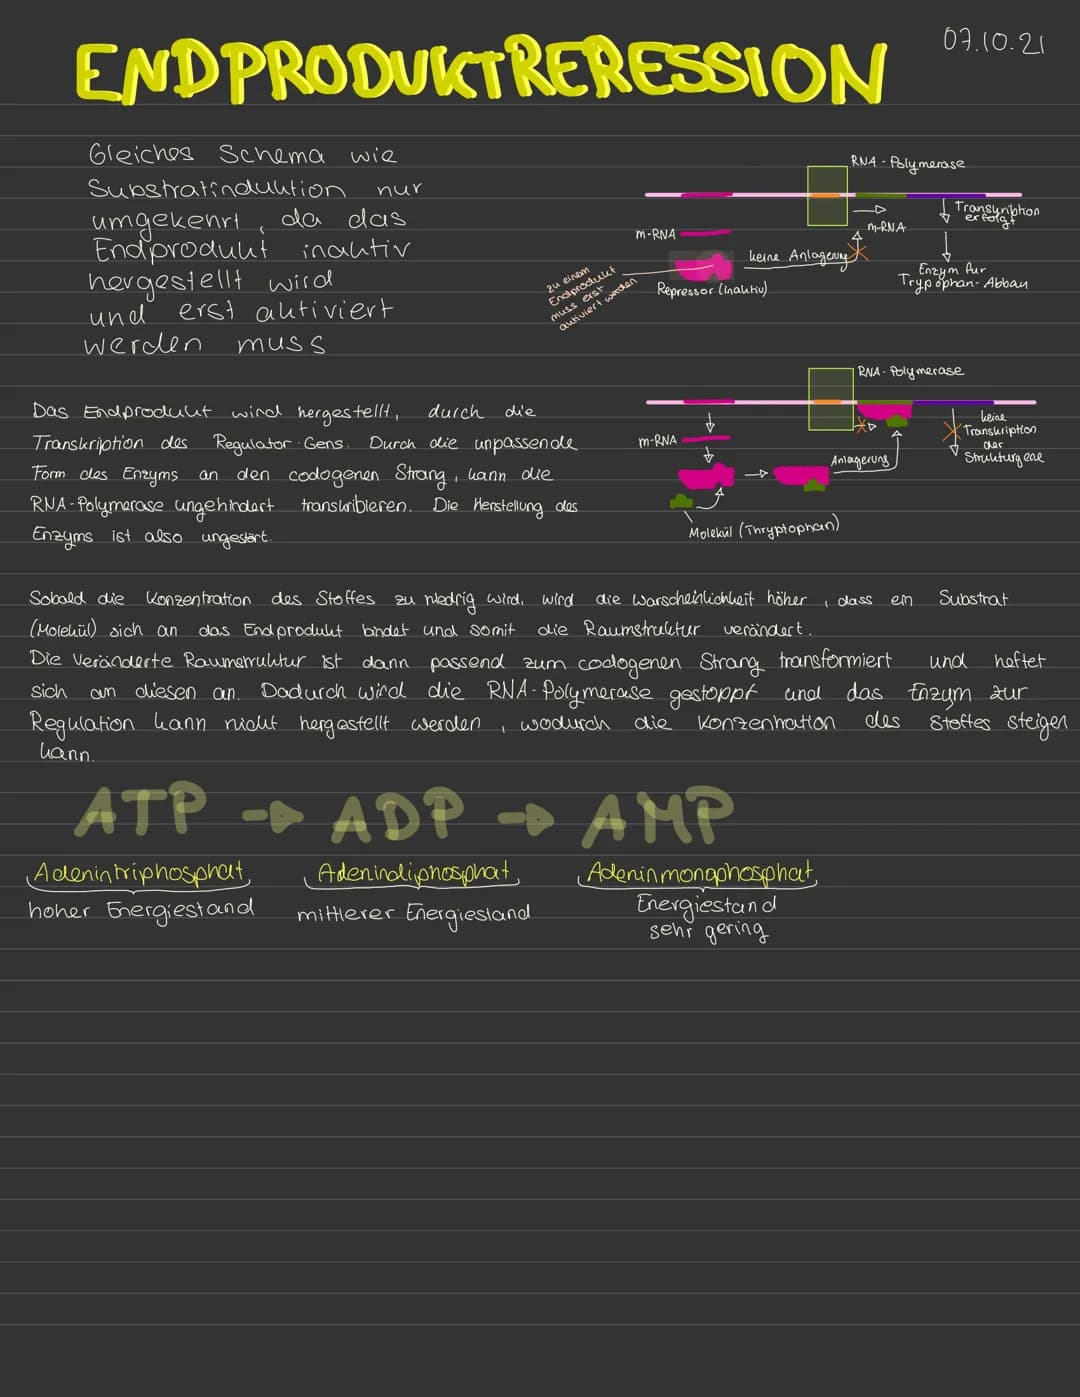 07.10.21
ENDPRODUKTRERESSION
Gleiches Schema wie
Substratinduktion nur
umgekehrt, da das
Endprodukt inaktiv
hergestellt wird
und erst aktiviert
werden muss
RNA-Polymerase
m-RNA
Transkription
erfolgt
m-RNA
keine Anlagerung
Repressor (Inaktiv)
Enzym für
Tryptophan-Abbau
zu einem
Endprodukt
muss erst
aktiviert werden
Das Endprodukt wird hergestellt, durch die
Transkription des Regulator-Gens. Durch die unpassende
Form des Enzyms an den codogenen Strang, kann die
RNA-Polymerase ungehindert transkribieren. Die Herstellung des
Enzyms ist also ungestört.
RNA-Polymerase
m-RNA
keine
Transkription
der
Strukturgene
Anlagerung
Molekül (Thryptophan)
Sobald die Konzentration des Stoffes zu niedrig wird, wird die Warscheinlichkeit höher, dass ein Substrat
(Molekül) sich an das Endprodukt bindet und somit die Raumstruktur verändert.
Die Veränderte Raumstruktur ist dann passend zum codogenen Strang transformiert und heftet
sich an diesen an. Dadurch wird die RNA-Polymerase gestoppt und das Enzym zur
Regulation kann nicht hergestellt werden, wodurch die Konzentration des Stoffes steigen
kann.
ATP → ADP → AMP
Adenintriphosphat
Adenindiphosphat
Adeninmonophosphat
hoher Energiestand
mittlerer Energiestand
Energiestand
sehr gering